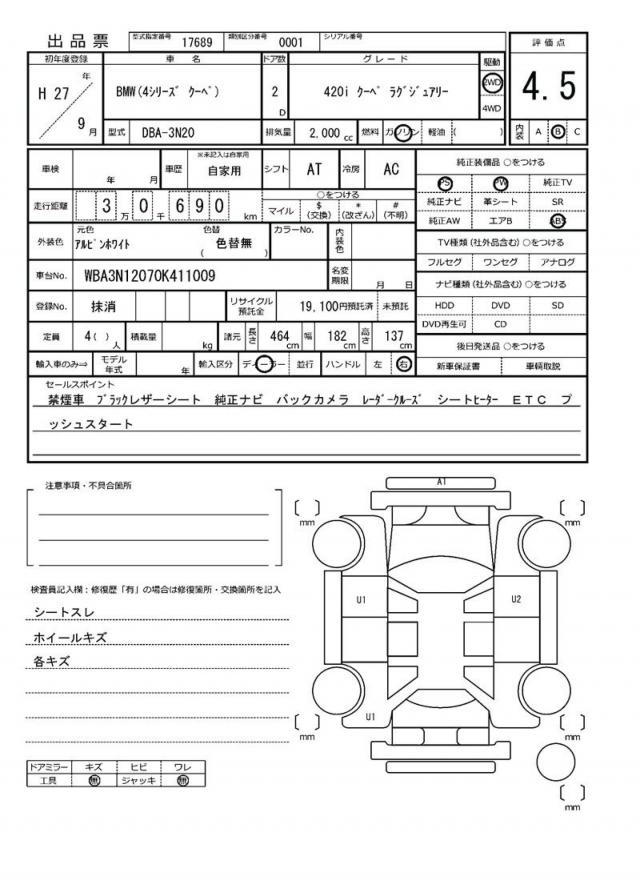 出品票 型式指定番号 17689 類別区分番号 0001 シリアル番号
初年度登録 車名 ドア数 グレード 駆動 評価点
H 27 年 9 月 BMW(4シリーズ クーペ) 2 D 420i クーペ ラグジュアリー 2WD 4WD 4.5
型式 DBA-3N20 排気量 2,000 cc 燃料 ガソリン 軽油 ( ) 内装 A B C
車検 年 月 車歴 ※未記入は自家用 自家用 シフト AT 冷房 AC 純正装備品 ○をつける
PS PW 純正TV
走行距離 3 万 0 千 6 9 0 km ○をつける
マイル $ (交換) * (改ざん) # (不明) 純正ナビ 革シート SR
純正AW エアB ABS
外装色 元色 アルピンホワイト 色替 ( 色替無 ) カラーNo. 内装色 TV種類 (社外品含む) ○をつける
フルセグ ワンセグ アナログ
車台No. WBA3N12070K411009 名変期限 月 日 ナビ種類 (社外品含む) ○をつける
登録No. 抹消 リサイクル預託金 19,100円預託済 未預託 HDD DVD SD
DVD再生可 CD
定員 4( ) 人 積載量 kg 諸元 長さ 464 cm 幅 182 cm 高さ 137 cm 後日発送品 ○をつける
輸入車のみ⇒ モデル年式 年 輸入区分 ディーラー 並行 ハンドル 左 右 新車保証書 車輌取説
セールスポイント
禁煙車 ブラックレザーシート 純正ナビ バックカメラ レーダークルーズ シートヒーター ETC プ
ッシュスタート
注意事項・不具合箇所
A1
mm
mm
検査員記入欄：修復歴「有」の場合は修復箇所・交換箇所を記入
シートスレ
U1
U2
ホイールキズ
各キズ
U1
mm
mm
ドアミラー キズ ヒビ ワレ
工具 無 ジャッキ 無
mm